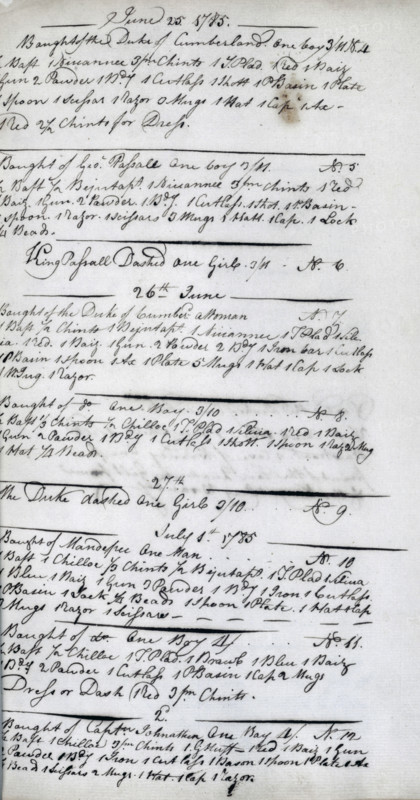 June 25 1785.
Bought of the Duke of Cumberland. One boy 3/11 N. 4
Baft 1 Nicannee 3 pm Chints 1 T. Plad 1 Red 1 Baiz
Gun 2 Powder 1 Bdy 1 Cutlass 1 Shott 1 P Basin 1 Plate
1 Spoon 1 Scissar 1 Razor 3 Mugs 1 Hat 1 Cap 1 Ax -
1 Red 2 Chints for Dress.
Bought of Geo. Passall One boy 3/11. No. 5
Baft Bejutapt. 1 Nicannee 3 pm Chints 1 Red
Baiz 1 Gun. 2 Powder 1 Bdy. 1 Cutlass. 1 Shot. 1 P. Basin -
1 Spoon. 1 Razor. 1 Scissars 3 Mugs 1 Hatt. 1 Cap. 1 Lock
Bead.
King Passall Dashed one Girl. 3/11 - No. 6
26th June
Bought of the Duke of Cumber: Woman No. 7
1 Baft Chints 1 Bejutapt. 1 Nicannee 1 T. Plad
1 Red. 1 Baiz 1 Gun. 2 Powder 2 Bdy 1 Iron bar 1 Cutlass
1 P Basin 1 Spoon 1 Ax 1 Plate 5 Mugs 1 Hat 1 Cap 1 Lock
1 Razor.
Bought of Do. One Boy. 3/10 No. 8.
Baft Chints Chilloe 1 T. Plad 1 Red 1 Baiz
1 Gun 2 Powder 1 Bdy 1 Cutlass 1 Shott 1 Spoon 1 Raz 2 Mug
1 Hat Bead.
27th
The Duke dashed One Girl 3/10. No. 9
July 1st 1785
Bought of One Man No. 10
1 Baft 1 Chilloe Chints Bejutapt. 1 T. Plad
1 Blew 1 Baiz 1 Gun 3 Powder 1 Bdy 1 Iron 1 Cutlass.
P Basin 1 Lock Beads 1 Spoon 1 Plate. 1 Hat 1 Cap
Mugs 1 Razor 1 Scissars
Bought of Do. One Boy 4/ No. 11.
Baft Chilloe 1 T. Plad. 1 1 Blew 1 Baiz
Bdy 2 Powder 1 Cutlass 1 P Basin 1 Cap 2 Mugs
Dress or Dash 1 Red 3 pm Chints.
2.
Bought of Captn Johnathan One Boy 4/. No. 12
Baft 1 Chilloe 3 pm Chints 1 1 Red 1 Baiz 1 Gun
2 Powder 1 Bdy 1 Iron 1 Cutlass 1 Bason 1 Spoon 1 Plate 1 Ax
Bead 1 Scissars 2 Mugs. 1 Hat. 1 Cap 1 Razor.